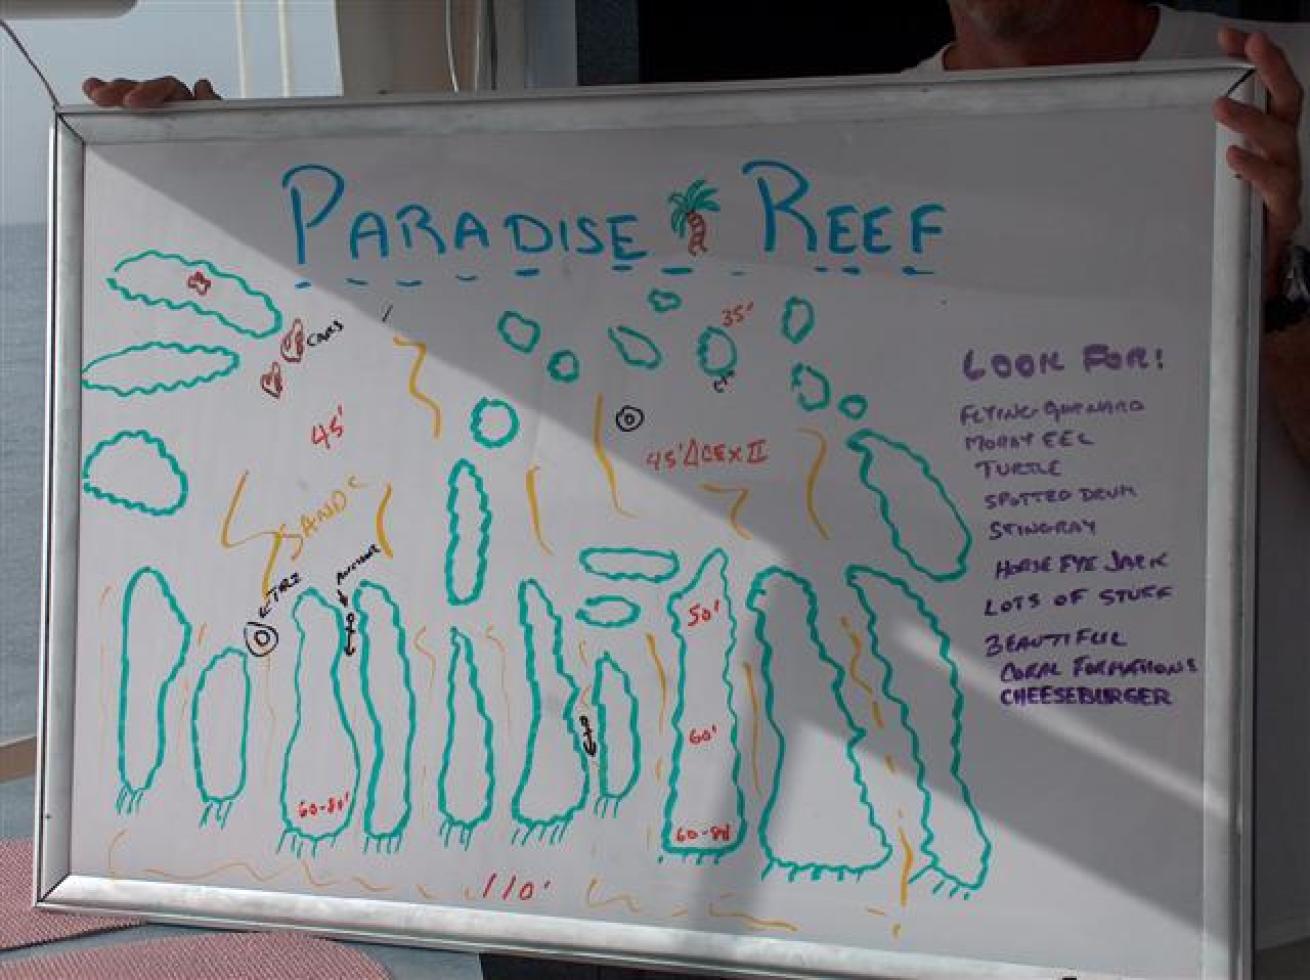 PARADISE REEF
CARS
35'
45'
45' ACEX II
SANDS
TRI
ANCHOR
50'
60'
60-80'
60-80'
110'
LOOK FOR!
FLYING GURNARD
MORAY EEL
TURTLE
SPOTTED DRUM
STINGRAY
HORSE EYE JACK
LOTS OF STUFF
BEAUTIFUL
CORAL FORMATIONS
CHEESEBURGER